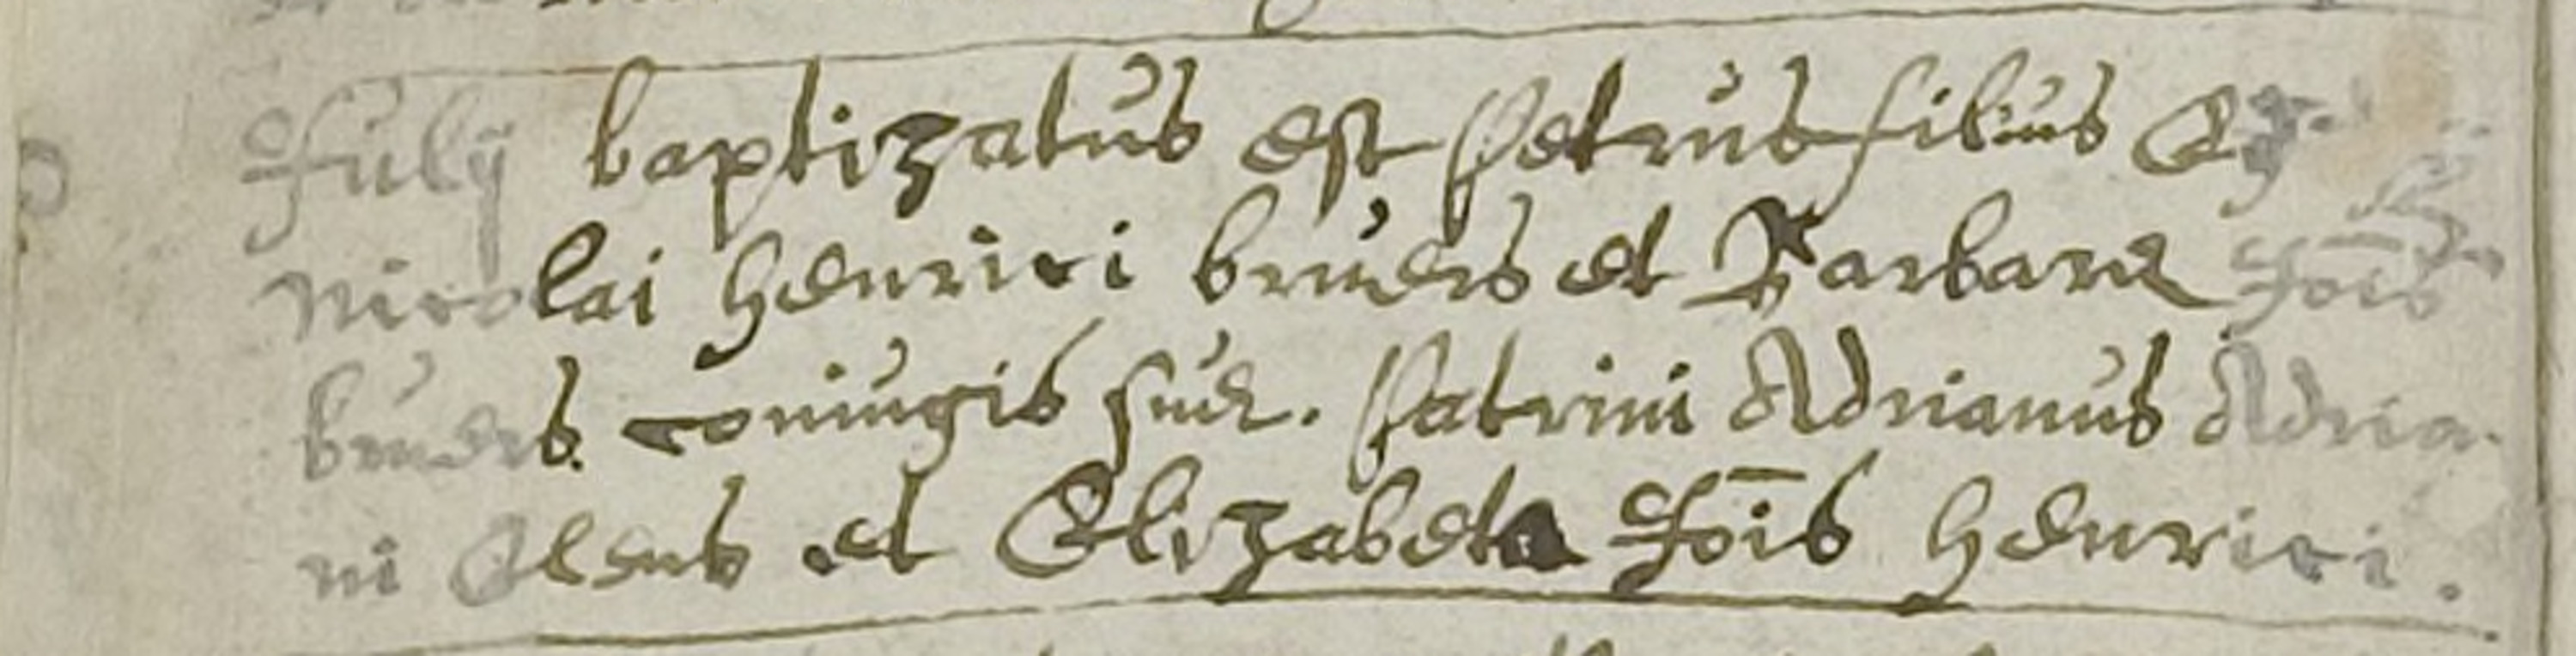 Julij baptizatus est Petrus filius
Nicolai Henrici bruers et Barbare Jois
bruers coniugis sue. Patrini Adrianus Adria-
ni et Elizabeta Jois Henrici.